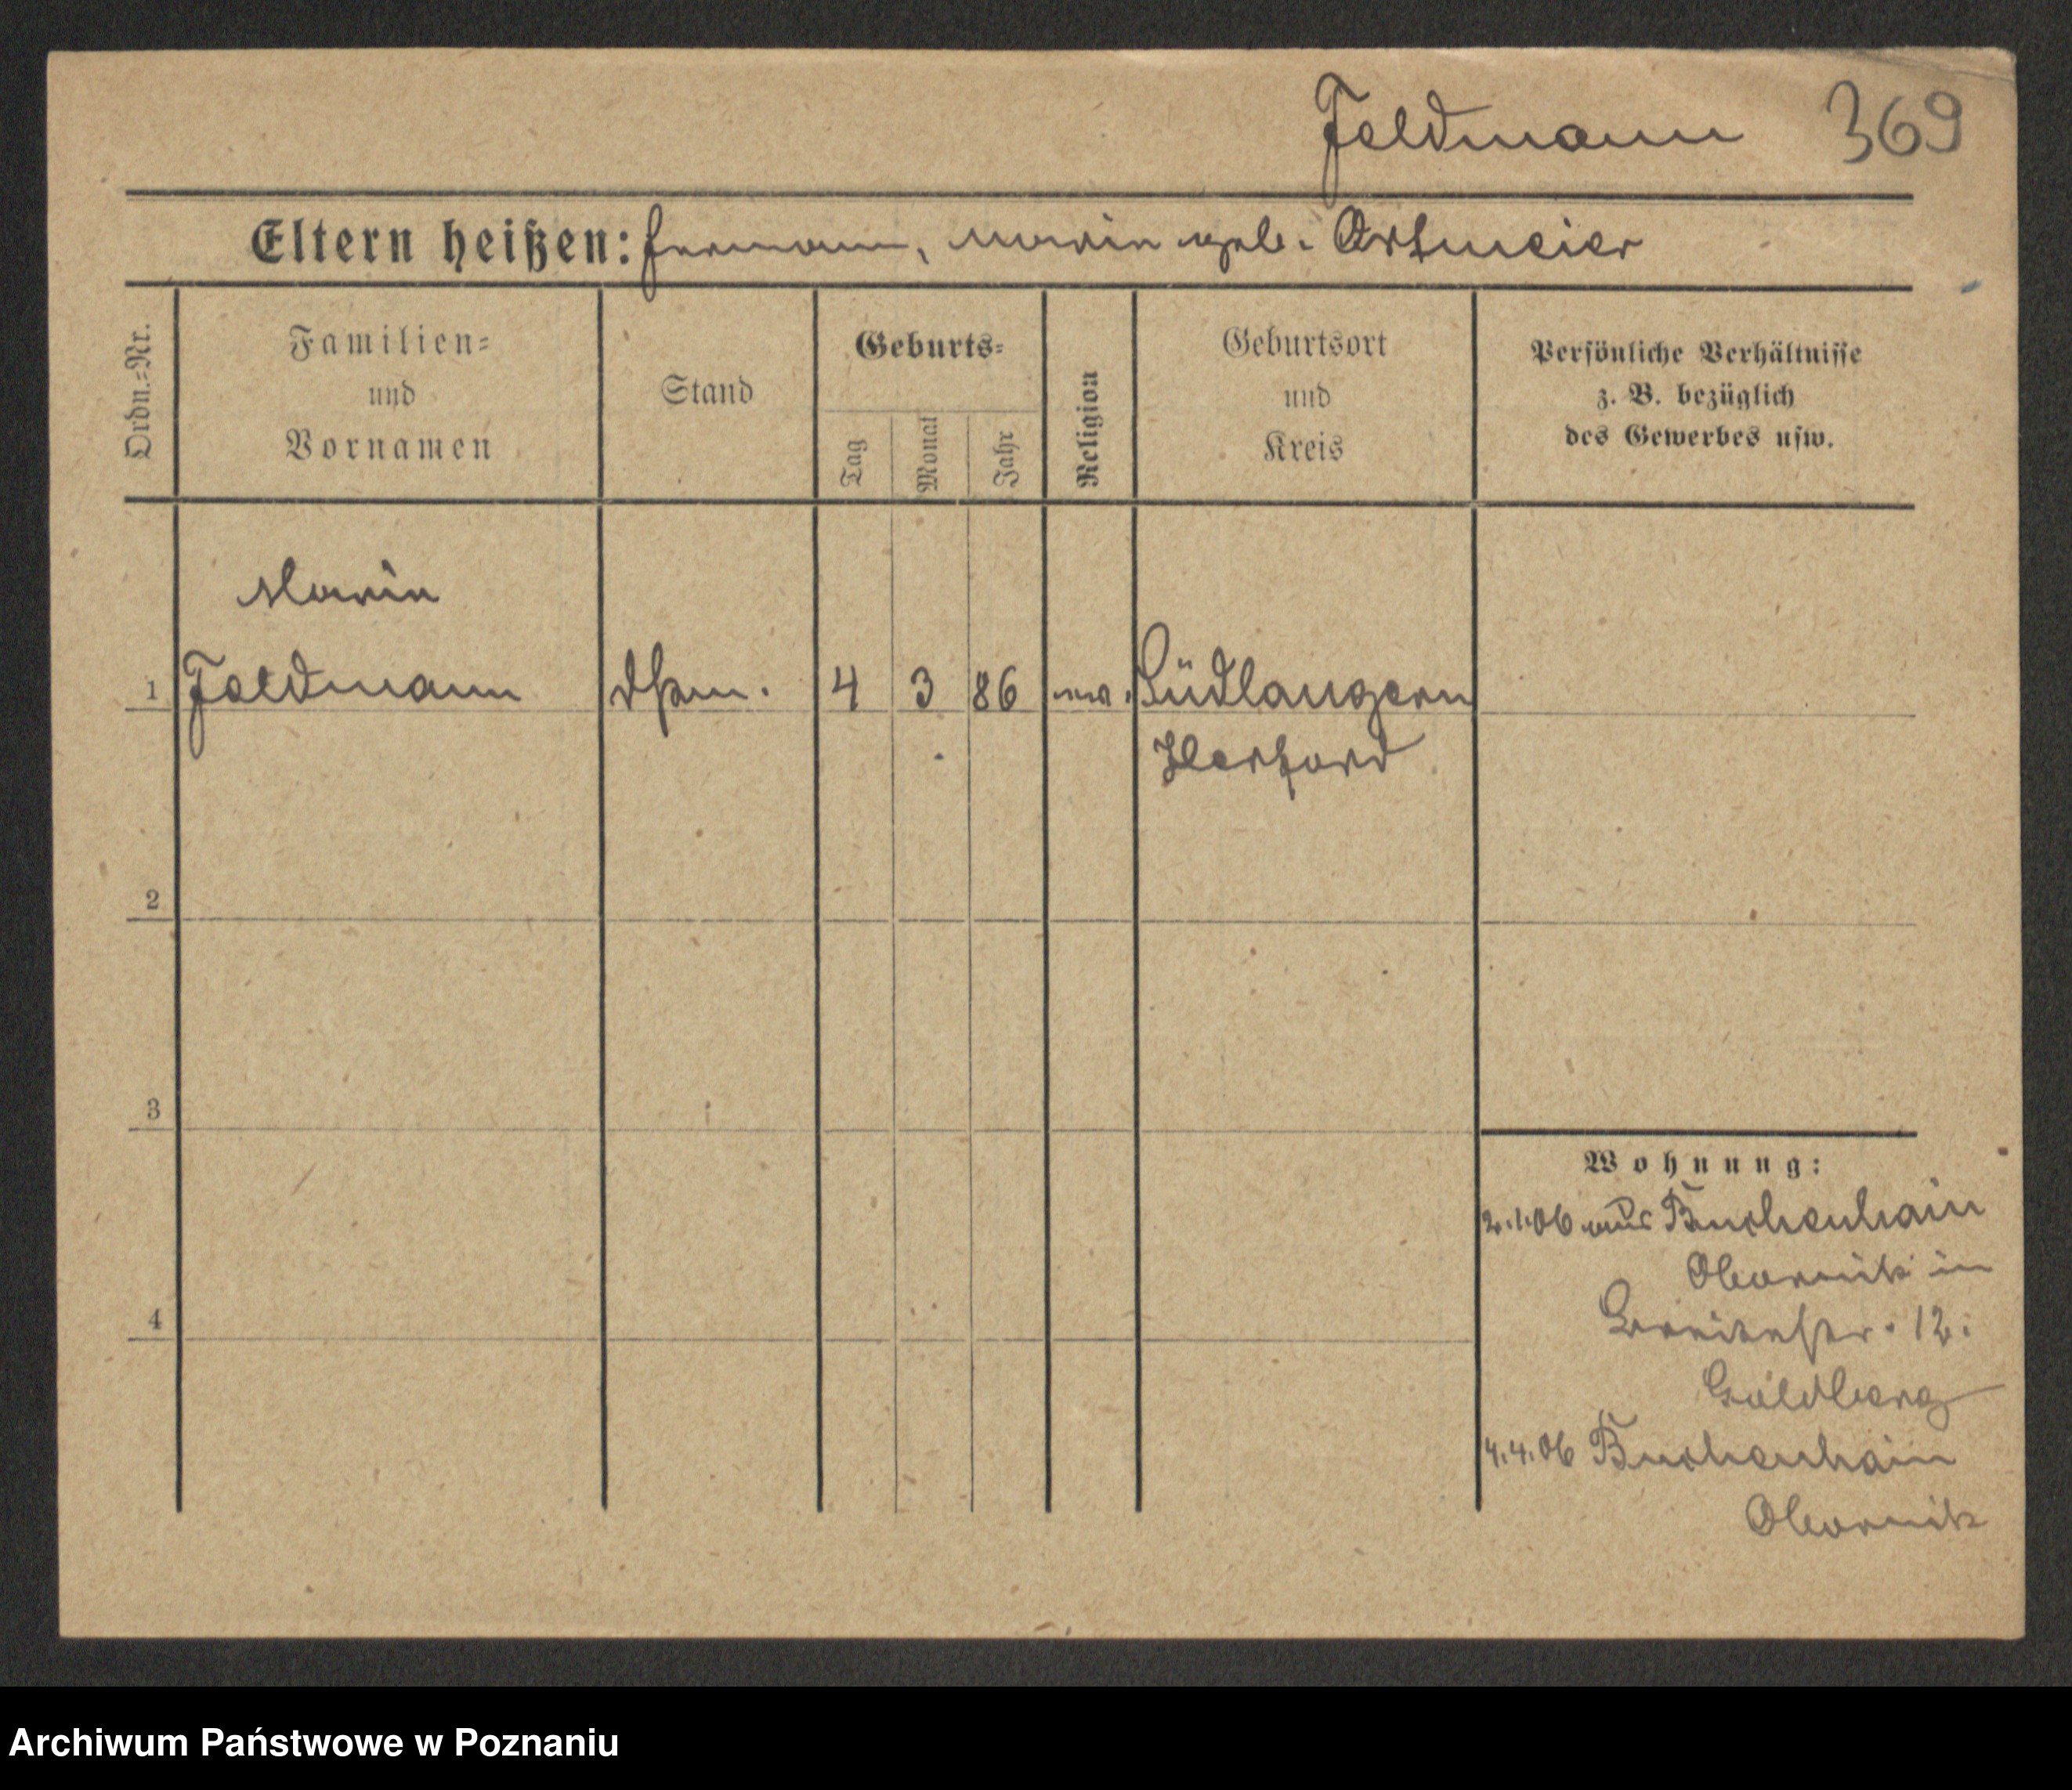 Feldmann 369
Eltern heißen: Hermann, Marie geb. Ortmeier
Ordn.=Nr.
Familien=
und
Vornamen
Stand
Geburts=
Tag
Monat
Jahr
Religion
Geburtsort
und
Kreis
Persönliche Verhältnisse
z. B. bezüglich
des Gewerbes usw.
Marie
1 Feldmann 4 3 86 Südlangern
Herford
2
3
4
Wohnung:
2.1.06 aus Buchenhain
Obornik in
12.
Goldberg
4.4.06 Buchenhain
Obornik
Archiwum Państwowe w Poznaniu